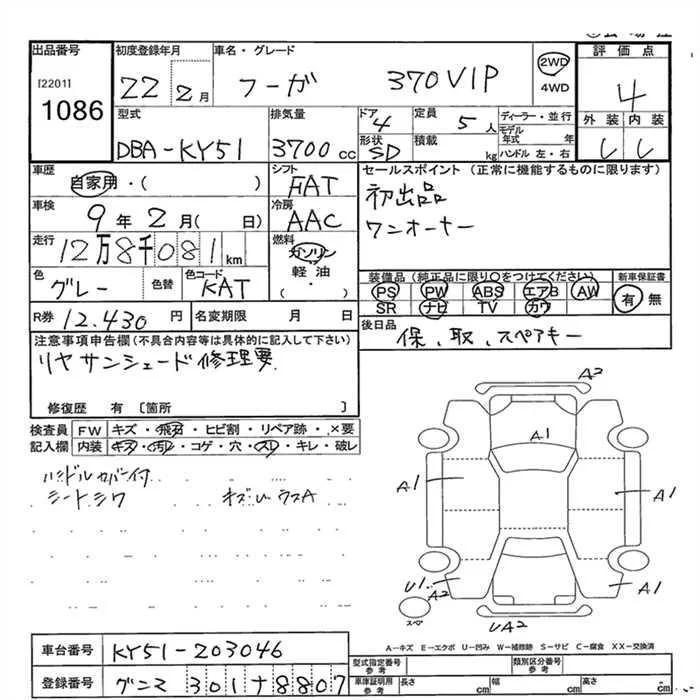 出品番号
[2201]
1086
初度登録年月
22 2月
車名・グレード
フーガ 370VIP
2WD
4WD
評価点
4
外装 内装
型式
DBA-KY51
排気量
3700cc
ドア
4
形状
SD
定員
5人
積載
kg
ディーラー・並行
モデル年式 年
ハンドル 左・右
車歴
自家用・( )
シフト
FAT
セールスポイント (正常に機能するものに限ります)
初出品
ワンオーナー
車検
9年2月( 日)
冷房
AAC
走行
12万8千081km
燃料
ガソリン
軽油
( ・ )
色
グレー
色替
色コード
KAT
装備品(純正品に限り〇をつけてください)
PS PW ABS エアB AW
SR ナビ TV カワ
新車保証書
有 無
R券 12.430円
名変期限 月 日
後日品
保、取、スペアキー
注意事項申告欄(不具合内容等は具体的に記入して下さい)
リヤサンシェード修理要
修復歴 有 〔箇所 〕
検査員記入欄
FW キズ・飛石・ヒビ割・リペア跡・×要
内装 キズ・汚レ・コゲ・穴・スレ・キレ・破レ
ハンドルカバー付
シートシワ
A2
A1
A1
A1
U1
A2
A1
UA2
スペ
A-キズ E-エクボ U-凹み W-補修跡 S-サビ C-腐食 XX-交換済
車台番号
KY51-203046
登録番号
グンマ 301 8807
型式指定番号
参考
類別区分番号
参考
車庫証明用
参考
長さ cm
幅 cm
高さ cm